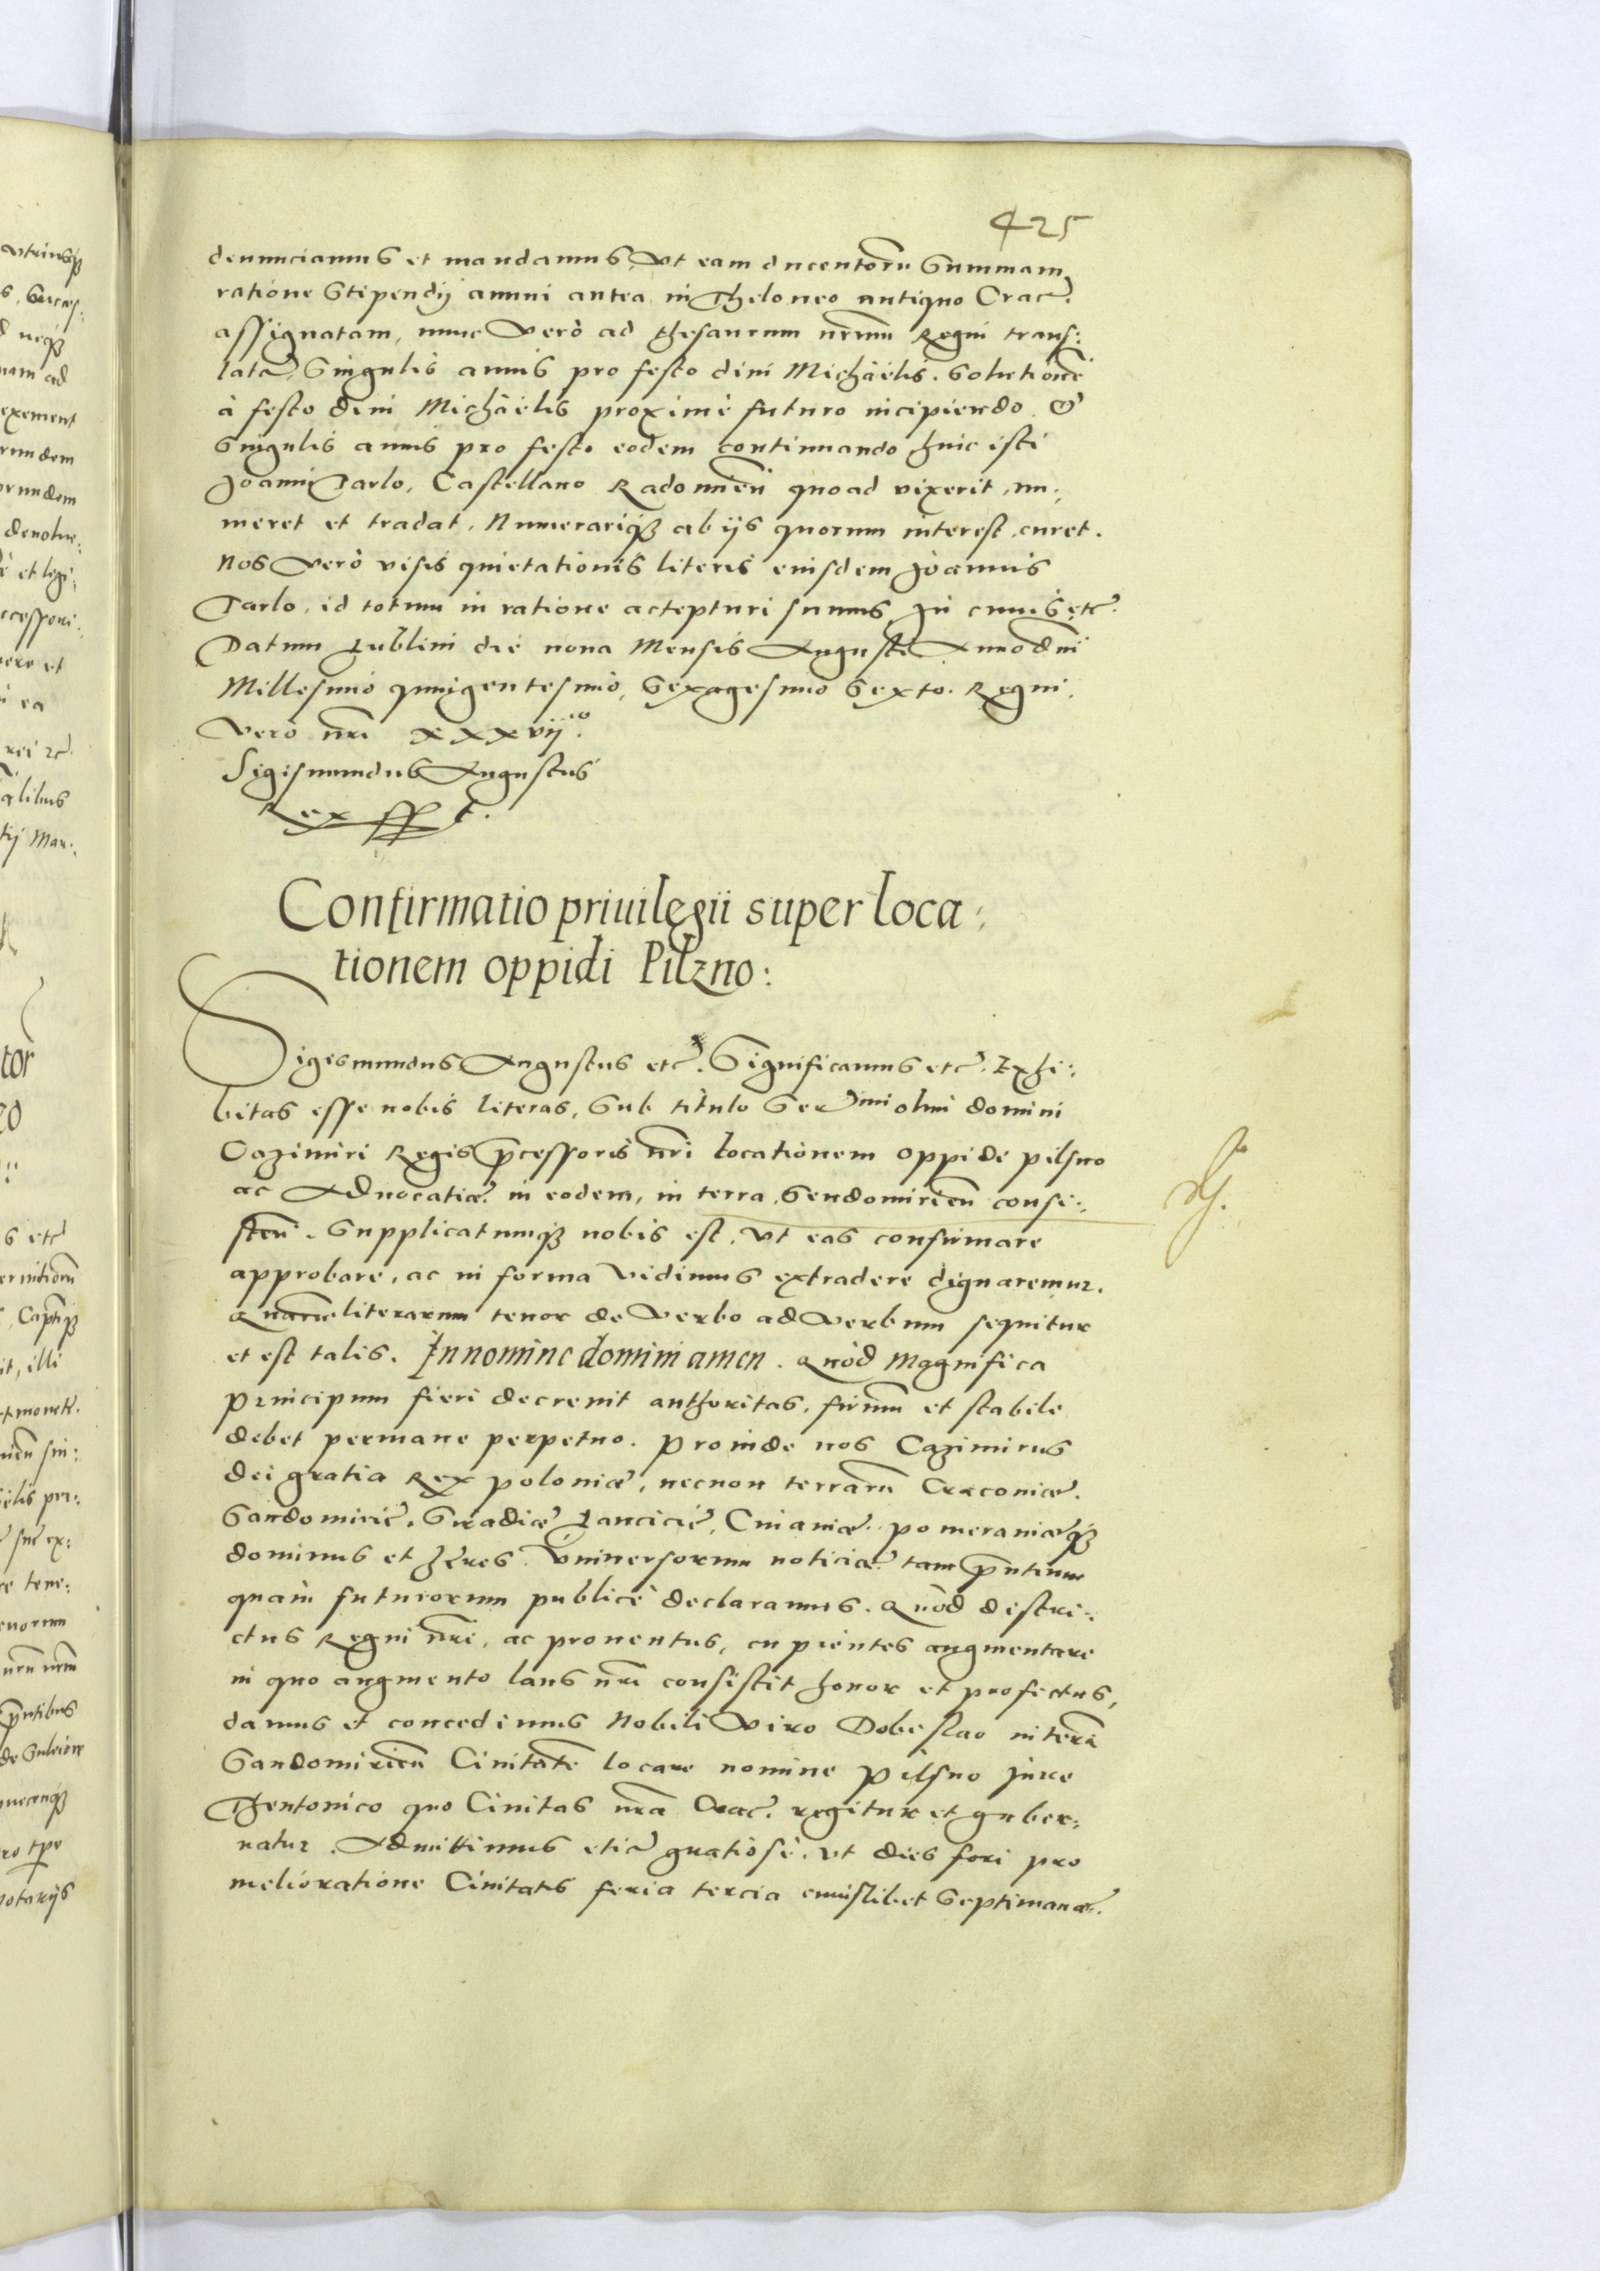 425
denunciamus et mandamus, Vt eam ducentorũ Summam,
ratione Stipendij annui antea in Theloneo antiquo Crac̃.
assignatam, nunc Verò ad thesaurum nr̃um Regni trans:
latã, Singulis annis pro festo diui Michäelis. Solutionẽ
à festo diui Michäelis proximè futuro incipiendo. &
Singulis annis pro festo eodem continuando huic isti
Joanni Tarlo, Castellano Radomieñ quoad vixerit, nu:
meret et tradat, Numerariq₃ ab ijs quorum interest, curet.
Nos Verò visis quietationis literis eiusdem Joannis
Tarlo, id totum in ratione accepturi sumus, In cuius etc̃.
Datum Lublini die nona Mensis Augusti Anno dñi
Millesimo quingentesimò, Sexagesimo Sexto. Regni,
Verò nr̃i xxxvij.ᵐᵒ
Sigismundus Augustus
Rex sspt.
Confirmatio priuilegii super loca:
tionem oppidi Pilzno:
Sigismundus Augustus etc̃. Significamus etc̃. Exhi:
bitas esse nobis literas, Sub titulo Ser̃mi olim domini
Cazimiri Regis p̃cessoris nr̃i locationem oppidi pilsno
ac Aduocatiæ in eodem, in terra Sendomirieñ consi:
steñ. Supplicatumq₃ nobis est, Vt eas confirmare
approbare, ac in forma Vidimus extradere dignaremur.
Quarũ literarum tenor de Verbo ad Verbum sequitur
et est talis. In nomine domini amen. Quòd Magnifica
Principum fieri decreuit authoritas, firmũ et stabile
debet permane perpetuo. Proinde nos Cazimirus
dei gratia Rex poloniæ, necnon terrarũ Cracouiæ.
Sandomirie, Siradiæ, Lancicie, Cuiauiæ. pomeraniæq₃
dominus et hæres. Vniuersorum noticiæ tam p̃ntium
quam futurorum publicè declaramus. Quòd destri:
ctus Regni nr̃i, ac prouentus, cupientes augmentare
in quo augmento laus nr̃i consistit honor et profectus,
damus et concedimus Nobili Viro Dobeslao in terrã
Sandomirieñ Ciuitatẽ locare nomine Pilsno Jure
Theutonico quo Ciuitas nr̃a Crac̃. regitur et guber:
natur. Admittimus etiã gratiosè. Vt dies fori pro
melioratione Ciuitatis feria tercia cuiuslibet Septimanæ.